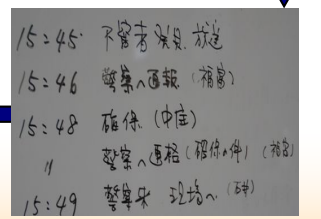 15:45 不審者発見 放送
15:46 警察へ通報
15:48 確保 (中庭)
〃 警察へ連絡 (確保の件)
15:49 警察来 現場へ